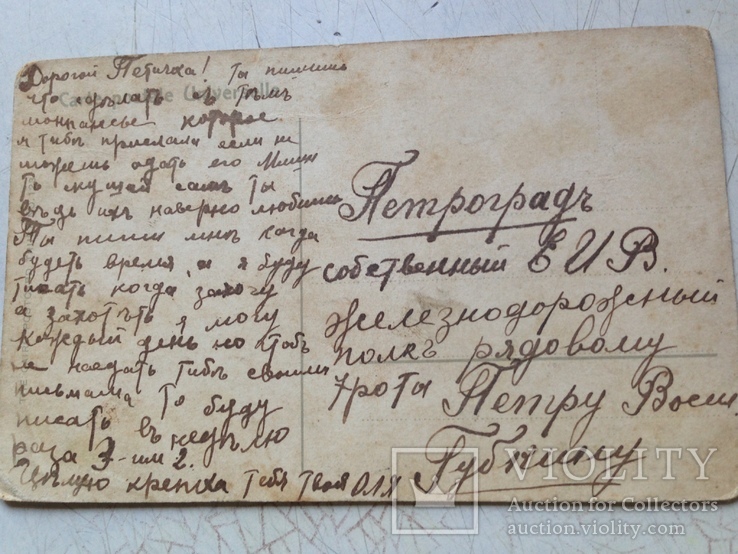 Дорогой Петичка! Ты пишишь
что сделать съ темъ
монпансье которое
я тибѣ прислали если не
можешь одать его Мишѣ
то кушай самъ ты
вѣдь ихъ наверно любишь
Ты пиши мнѣ когда
будеть время, а я буду
писать когда захочу
а захотѣть я могу
каждый день но чтобъ
не наедать тибѣ своими
письмами то буду
писать въ неделю
раза 3-или 2.
Цѣлую крепка тебя твоя Оля
Carte postale Universelle
Петроградъ
собственный Е И В.
железнодорожный
полкъ рядовому
7 рота Петру Васил.
Губкину
VIOLITY
Auction for Collectors
auction.violity.com